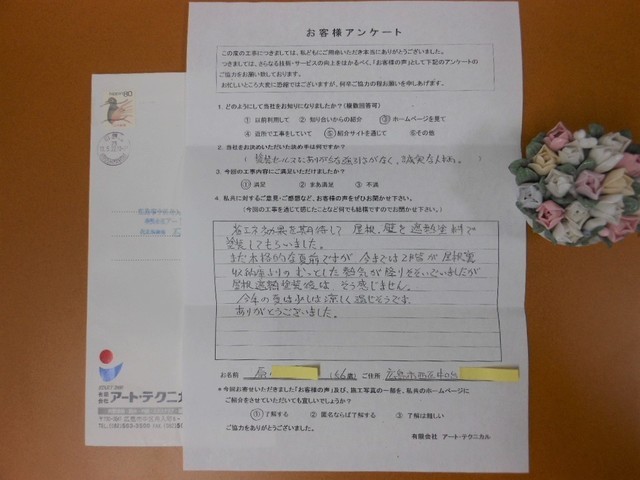 お客様アンケート
この度の工事につきましては、私どもにご用命いただき本当にありがとうございました。
つきましては、さらなる技術・サービスの向上をはかるべく、「お客様の声」として下記のアンケートの
ご協力をお願い致しております。
お忙しいところ大変に恐縮ではございますが、何卒ご協力の程お願いを申しあげます。
1. どのようにして当社をお知りになりましたか？(複数回答可)
① 以前利用して ② 知り合いからの紹介 ③ ホームページを見て
④ 近所で工事をしていて ⑤ 紹介サイトを通じて ⑥その他
2. 当社をお決めいただいた決め手は何ですか？
3. 今回の工事内容にご満足いただけましたか？
① 満足 ② まあ満足 ③ 不満
4. 私共に対するご意見・ご感想など、お客様の声をぜひお聞かせ下さい。
(今回の工事を通じて感じたことなど何でも結構ですのでお聞かせ下さい。)
省エネ効果を期待して 屋根、壁を遮熱塗料で
塗装してもらいました。
まだ本格的な夏前ですが 今までは2階が屋根裏
収納庫よりのむっとした熱気が降りそそいでいましたが
屋根遮熱塗装後は そう感じません。
今年の夏は少しは涼しく過せそうです。
ありがとうございました。
お名前 (56歳) ご住所 広島市西区
＊今回お寄せいただきました「お客様の声」及び、施工写真の一部を、私共のホームページに
ご紹介をさせていただいても宜しいでしょうか？
① 了解する ② 匿名ならば了解する ③ 了解は難しい
ご協力をありがとうございました。
有限会社 アート・テクニカル
80
有限会社 アート・テクニカル